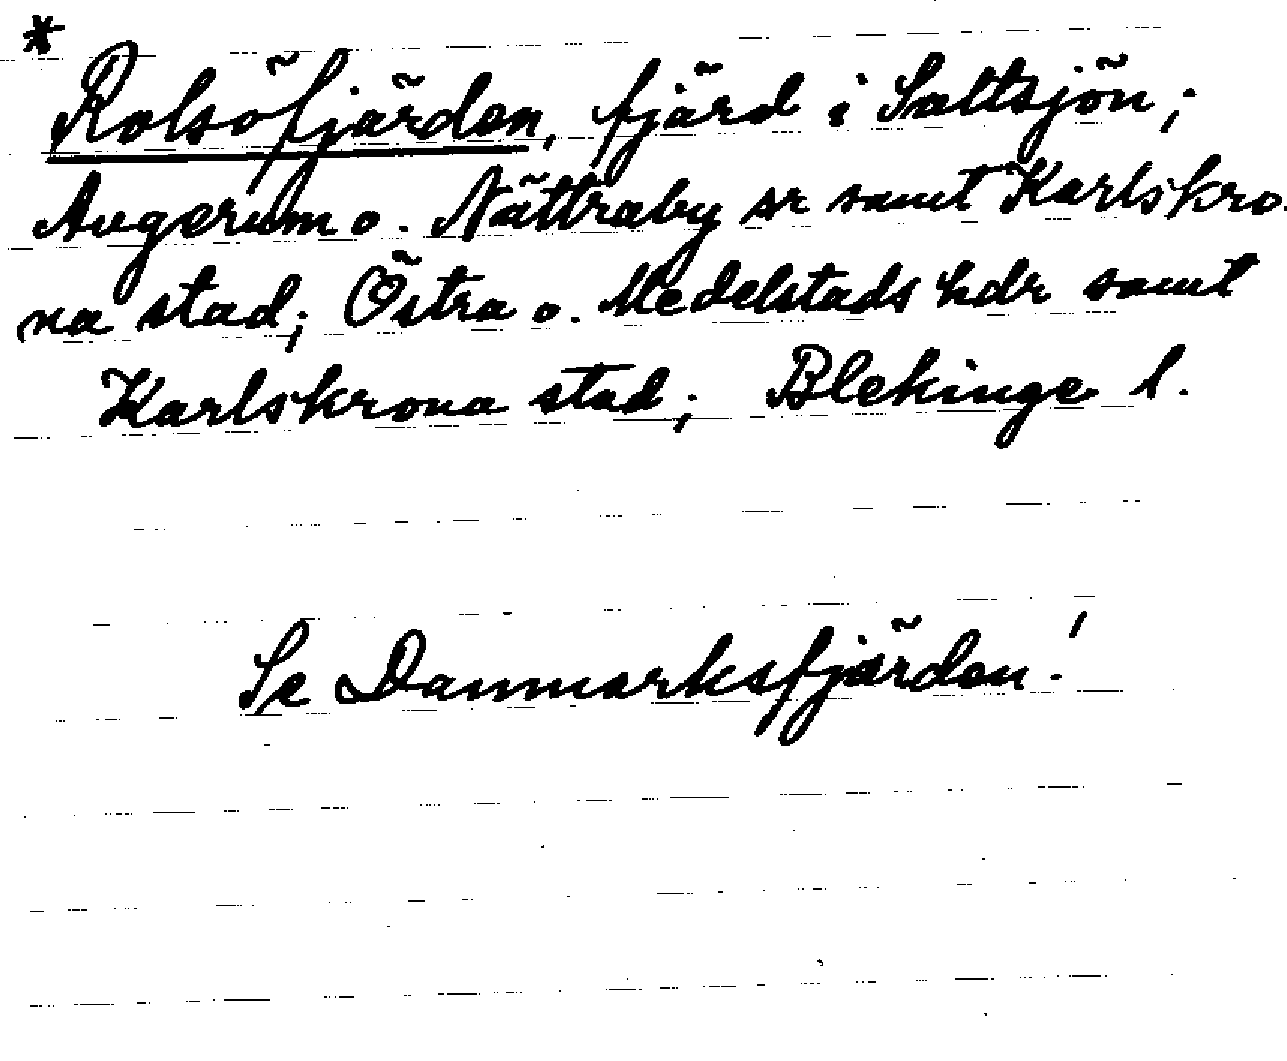 *
Rolsöfjärden, fjärd i Saltsjön;
Augerum o. Nättraby sr samt Karlskro
na stad; Östra o. Medelstads hdr samt
Karlskrona stad; Blekinge l.
Se Danmarksfjärden!